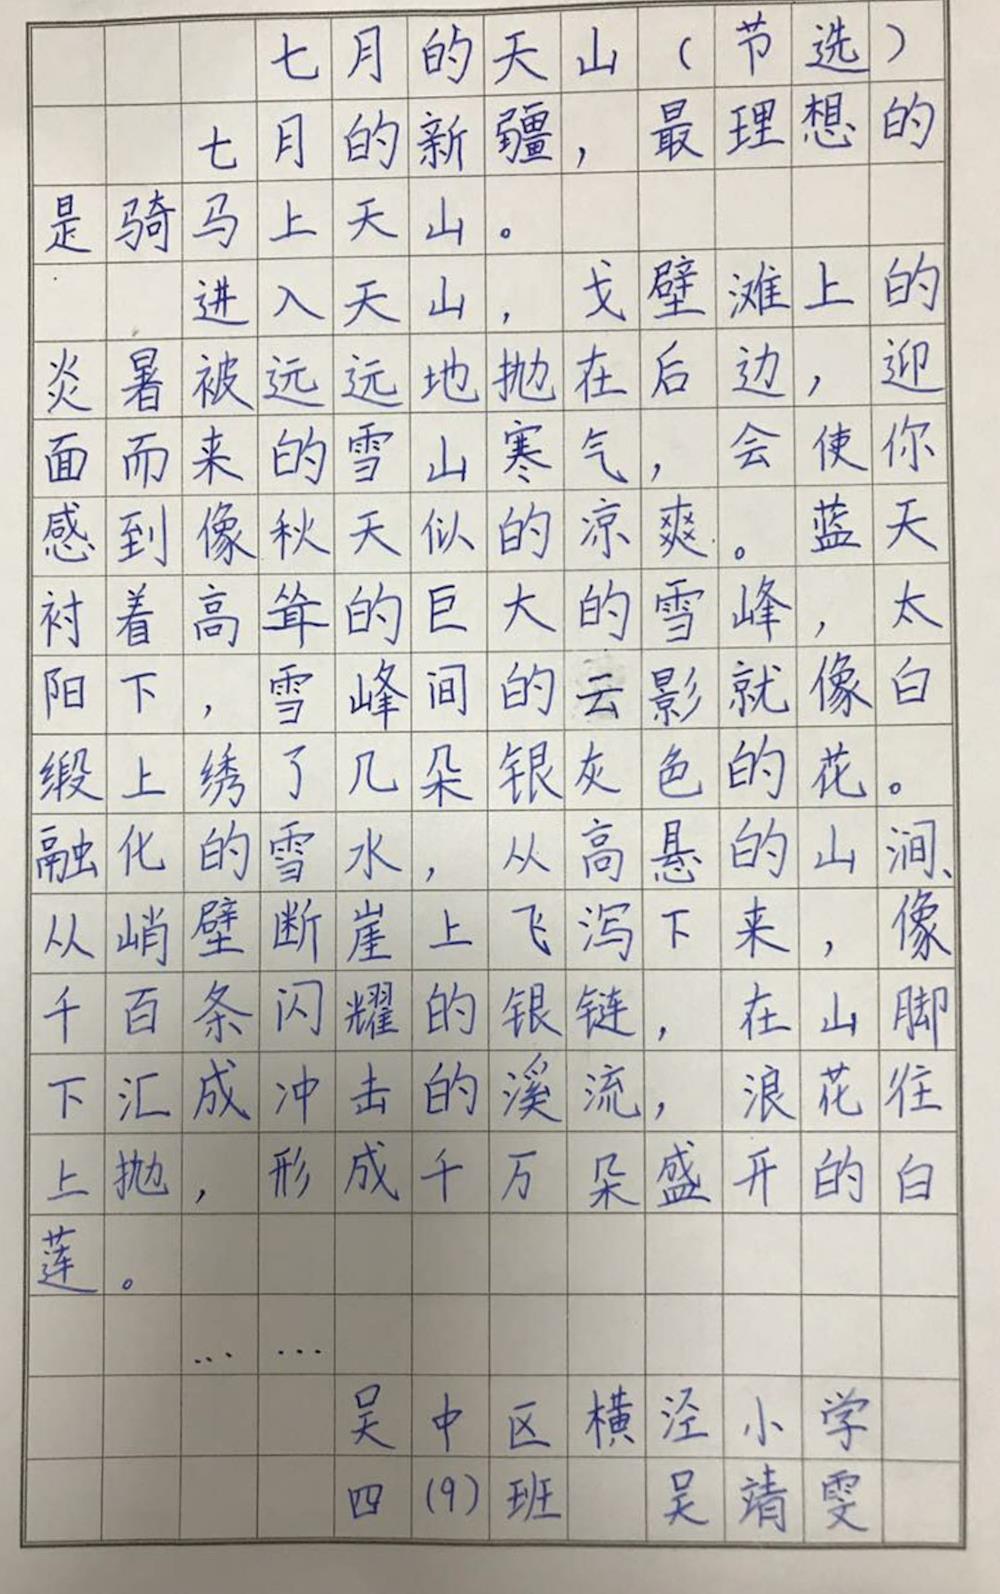 七月的天山（节选）
七月的新疆，最理想的
是骑马上天山。
进入天山，戈壁滩上的
炎暑被远远地抛在后边，迎
面而来的雪山寒气，会使你
感到像秋天似的凉爽。蓝天
衬着高耸的巨大的雪峰，太
阳下，雪峰间的云影就像白
缎上绣了几朵银灰色的花。
融化的雪水，从高悬的山涧、
从峭壁断崖上飞泻下来，像
千百条闪耀的银链，在山脚
下汇成冲击的溪流，浪花往
上抛，形成千万朵盛开的白
莲。
……
吴中区横泾小学
四（9）班 吴靖雯